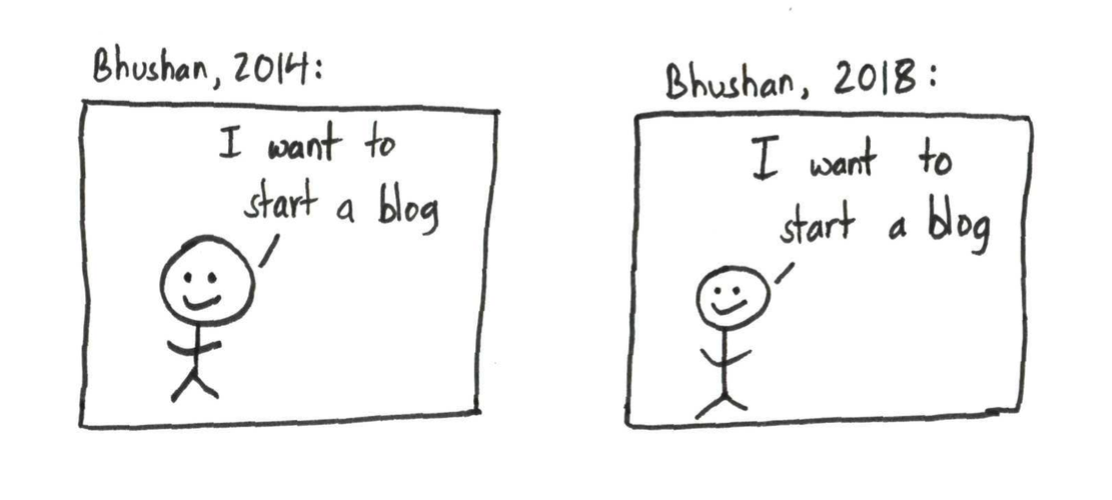 Bhushan, 2014:
I want to
start a blog
Bhushan, 2018:
I want to
start a blog